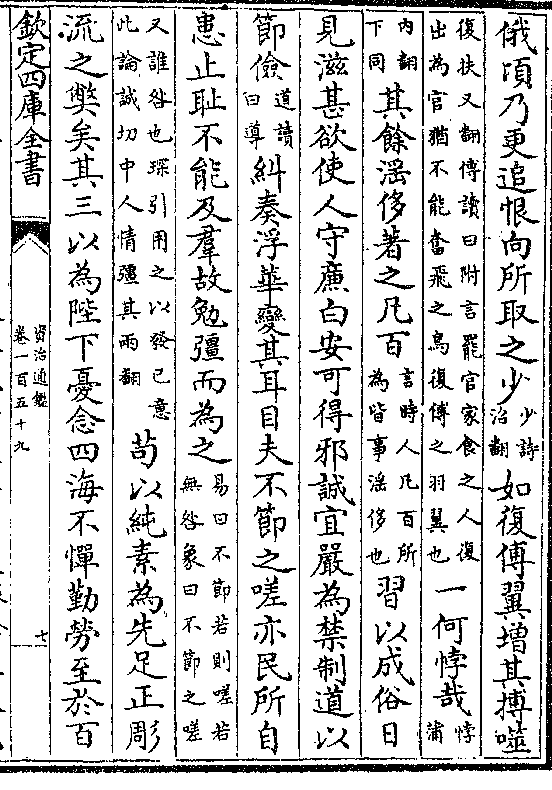 俄頃乃更追恨向所取之少少詩沼翻如復傅翼增其搏噬
復扶又翻傅讀曰附言罷官家食之人復出為官猶不能奮飛之鳥復傅之羽翼也一何悖哉悖蒲
内翻下同其餘滛侈著之凡百言時人凡百所為皆事滛侈也習以成俗日
見滋甚欲使人守廉白安可得邪誠宜嚴為禁制道以
節儉道讀曰導糾奏浮華變其耳目夫不節之嗟亦民所自
患止耻不能及羣故勉彊而為之易曰不節若則嗟若無咎象曰不節之嗟
又誰咎也琛引用之以發已意此論誠切中人情彊其兩翻苟以純素為先足正彫
流之弊矣其三以為陛下憂念四海不憚勤勞至於百
欽定四庫全書
資治通鑑
卷一百五十九
七